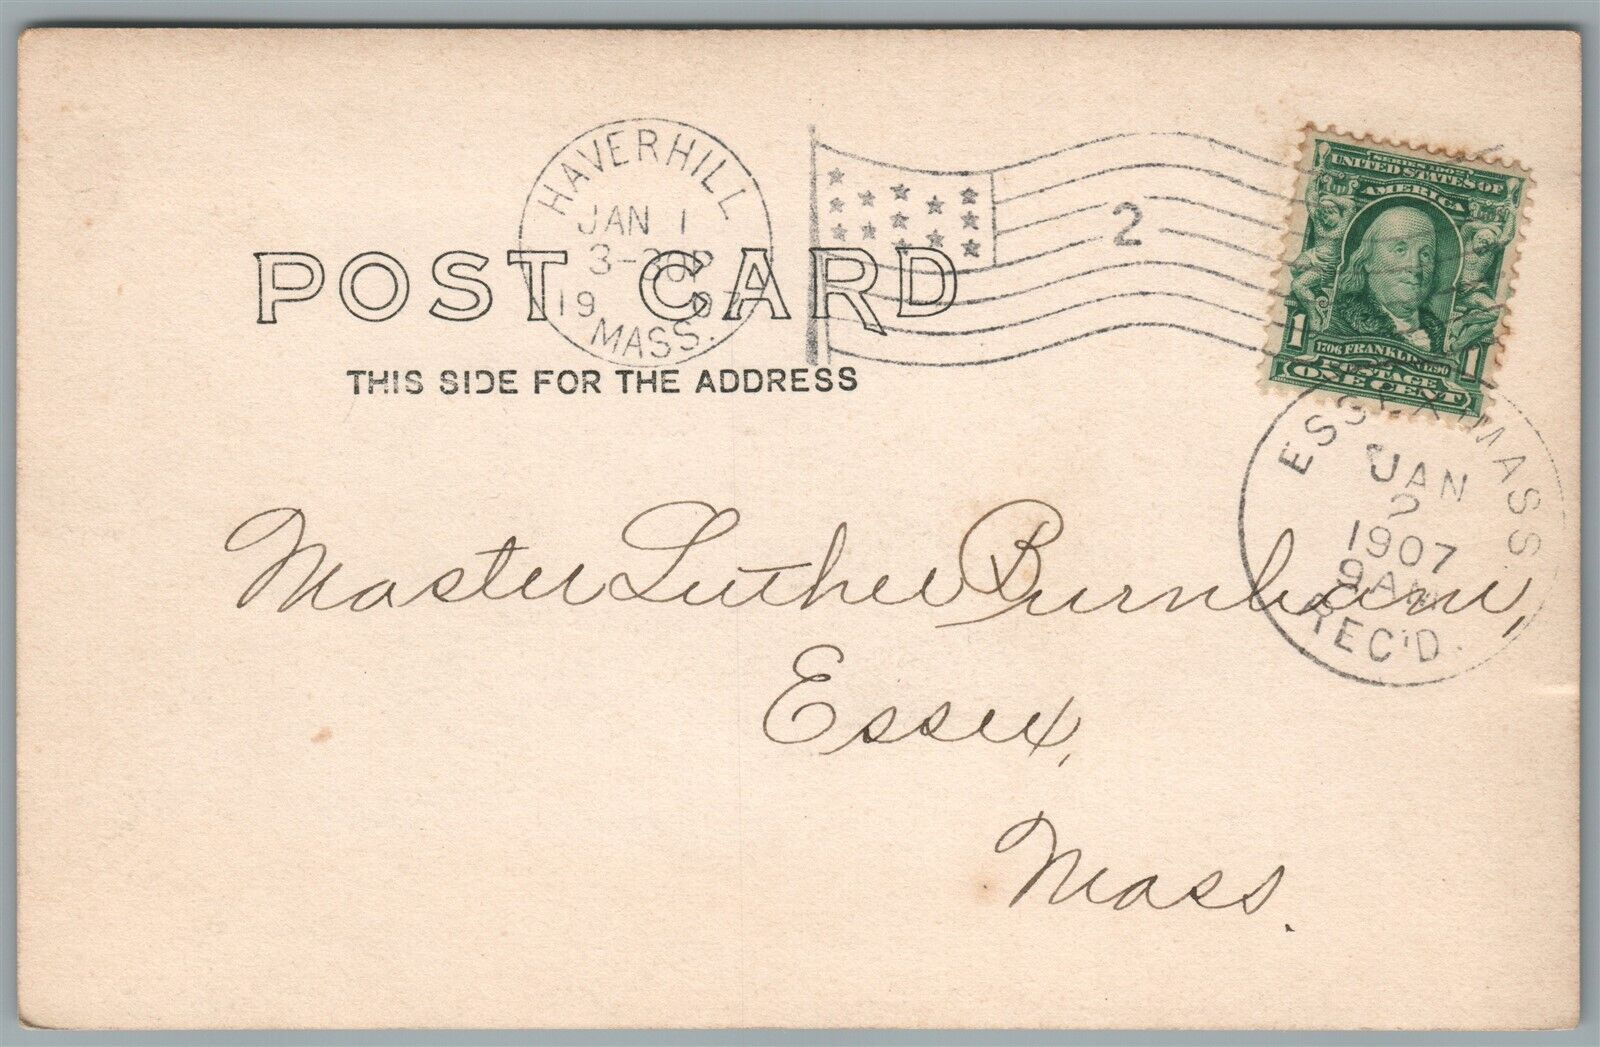 HAVERHILL
JAN 1
3-30P
1907
MASS.
2
SERIES 1902
UNITED STATES OF
AMERICA
1706 FRANKLIN 1790
1 1
POSTAGE
ONE CENT
POST CARD
THIS SIDE FOR THE ADDRESS
ESSEX, MASS.
JAN
2
1907
9AM
REC'D.
Master Luther Burnham,
Essex,
Mass.